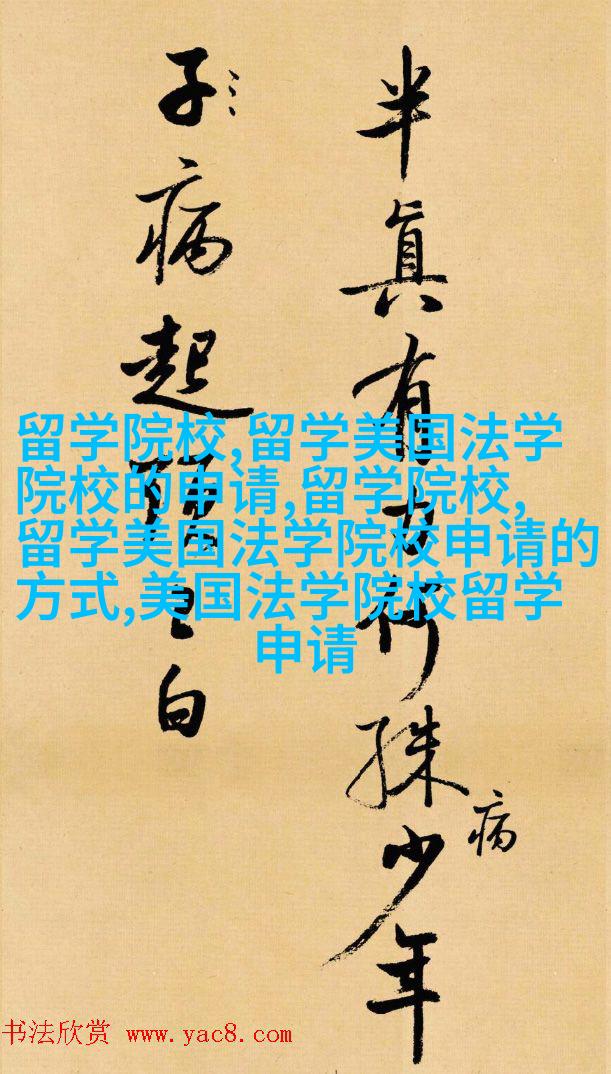 半眞有何殊少年
病
子病起白
留学院校,留学美国法学
院校的申请,留学院校,
留学美国法学院校申请的
方式,美国法学院校留学
申请
书法欣赏 www.yac8.com